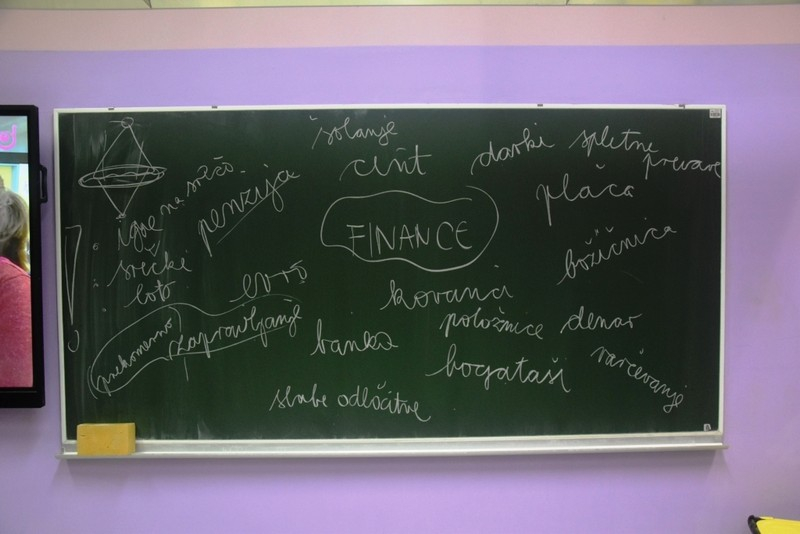 šolanje
cint
darki
spletne
prevare
igre na srečo
penzija
plača
FINANCE
božičnica
srečke
loto
evro
kovanci
položnice
denar
prekomerno
zapravljanje
banka
bogataši
varčevanje
slabe odločitve
ej